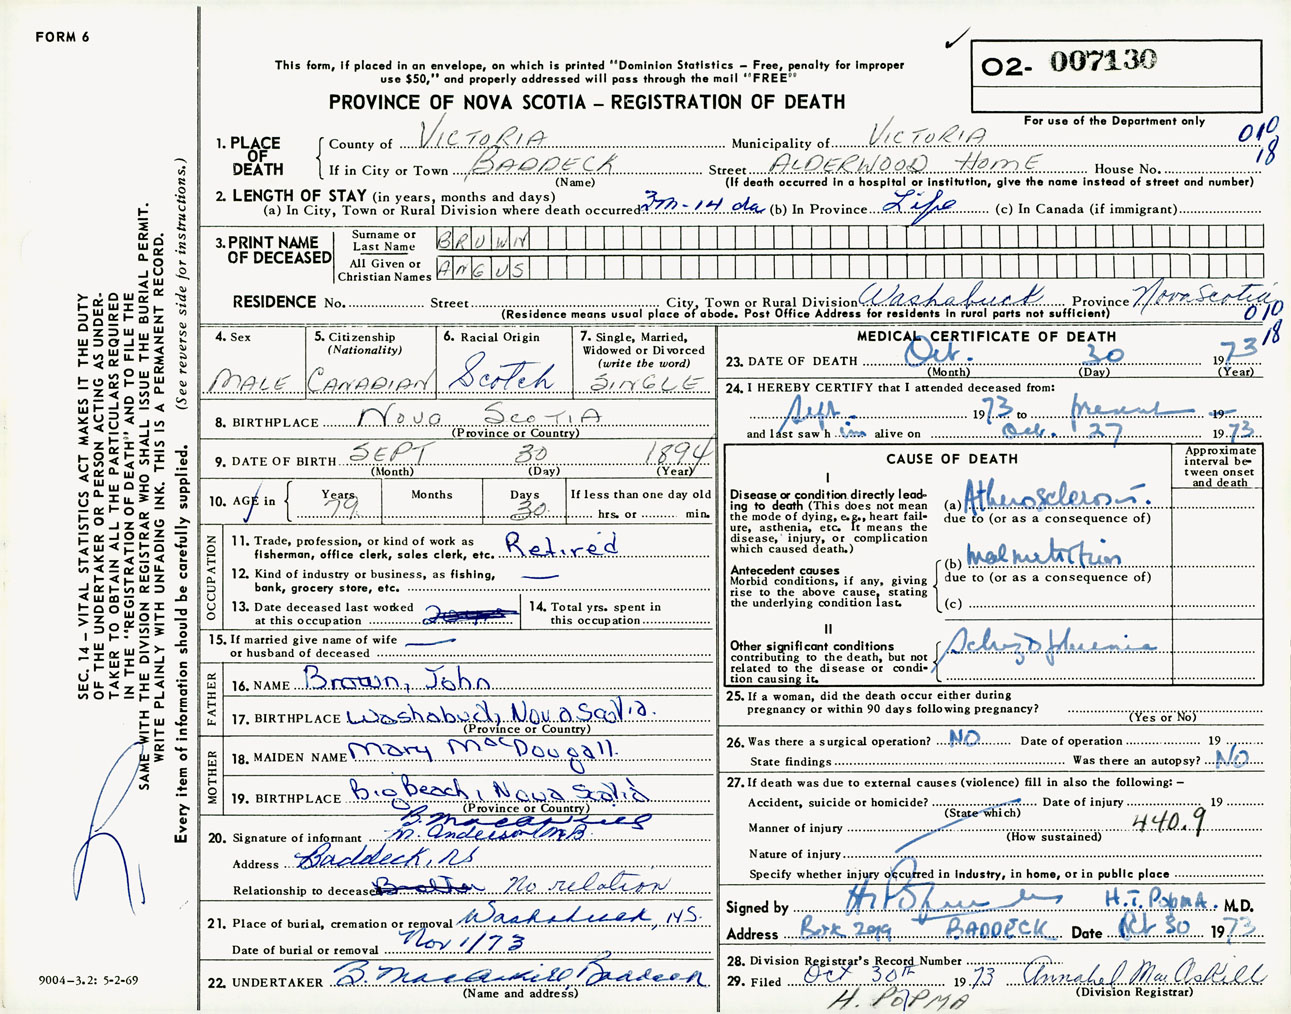 FORM 6
This form, if placed in an envelope, on which is printed "Dominion Statistics – Free, penalty for improper
use $50," and properly addressed will pass through the mail "FREE"
PROVINCE OF NOVA SCOTIA – REGISTRATION OF DEATH
O2- 007130
For use of the Department only
010
18
1. PLACE OF DEATH
County of VICTORIA Municipality of VICTORIA
If in City or Town BADDECK Street ALDERWOOD HOME House No.
(Name) (If death occurred in a hospital or institution, give the name instead of street and number)
2. LENGTH OF STAY (in years, months and days)
(a) In City, Town or Rural Division where death occurred 3m-14 da (b) In Province Life (c) In Canada (if immigrant)
3. PRINT NAME OF DECEASED
Surname or Last Name BROWN
All Given or Christian Names ANGUS
RESIDENCE No. Street City, Town or Rural Division Washabuck Province Nova Scotia
(Residence means usual place of abode. Post Office Address for residents in rural parts not sufficient)
010
18
4. Sex MALE
5. Citizenship (Nationality) CANADIAN
6. Racial Origin Scotch
7. Single, Married, Widowed or Divorced (write the word) SINGLE
8. BIRTHPLACE NOVA SCOTIA
(Province or Country)
9. DATE OF BIRTH SEPT 30 1894
(Month) (Day) (Year)
10. AGE in Years 79 Months Days 30 If less than one day old
hrs. or min.
OCCUPATION
11. Trade, profession, or kind of work as
fisherman, office clerk, sales clerk, etc. Retired
12. Kind of industry or business, as fishing,
bank, grocery store, etc. —
13. Date deceased last worked
at this occupation
14. Total yrs. spent in
this occupation
15. If married give name of wife
or husband of deceased —
FATHER
16. NAME Brown, John
17. BIRTHPLACE Washabuck, Nova Scotia.
(Province or Country)
MOTHER
18. MAIDEN NAME Mary MacDougall.
19. BIRTHPLACE Big Beach, Nova Scotia
(Province or Country)
20. Signature of informant
M. Anderson
Address Baddeck, NS
Relationship to deceased No relation
21. Place of burial, cremation or removal Washabuck, NS.
Date of burial or removal Nov 1/73
22. UNDERTAKER B. MacAskill, Baddeck
(Name and address)
MEDICAL CERTIFICATE OF DEATH
23. DATE OF DEATH Oct. 30 1973
(Month) (Day) (Year)
24. I HEREBY CERTIFY that I attended deceased from:
Sept. 1973 to present 19
and last saw him alive on Oct. 27 1973
CAUSE OF DEATH
Approximate interval between onset and death
I
Disease or condition directly lead-
ing to death (This does not
mean the mode of dying, e.g., heart fail-
ure, asthenia, etc. It means the
disease, injury, or complication
which caused death.)
(a) Atherosclerosis.
due to (or as a consequence of)
Antecedent causes
Morbid conditions, if any, giving
rise to the above cause, stating
the underlying condition last.
(b) malnutrition
due to (or as a consequence of)
(c)
II
Other significant conditions
contributing to the death, but not
related to the disease or condi-
tion causing it.
Schizophrenia
25. If a woman, did the death occur either during
pregnancy or within 90 days following pregnancy?
(Yes or No)
26. Was there a surgical operation? NO Date of operation 19
State findings Was there an autopsy? NO
27. If death was due to external causes (violence) fill in also the following: –
Accident, suicide or homicide? Date of injury 19
(State which)
Manner of injury 440.9
(How sustained)
Nature of injury
Specify whether injury occurred in Industry, in home, or in public place
Signed by H.T. POPMA. M.D.
Address Box BADDECK Date Oct 30 1973
28. Division Registrar's Record Number
29. Filed Oct 30th 1973 Annabel MacAskill
(Division Registrar)
H. POPMA
SEC. 14 – VITAL STATISTICS ACT MAKES IT THE DUTY
OF THE UNDERTAKER OR PERSON ACTING AS UNDER-
TAKER TO OBTAIN ALL THE PARTICULARS REQUIRED
IN THE "REGISTRATION OF DEATH" AND TO FILE THE
SAME WITH THE DIVISION REGISTRAR WHO SHALL ISSUE THE BURIAL PERMIT.
WRITE PLAINLY WITH UNFADING INK. THIS IS A PERMANENT RECORD.
Every item of information should be carefully supplied. (See reverse side for instructions.)
9004–3.2: 5-2-69